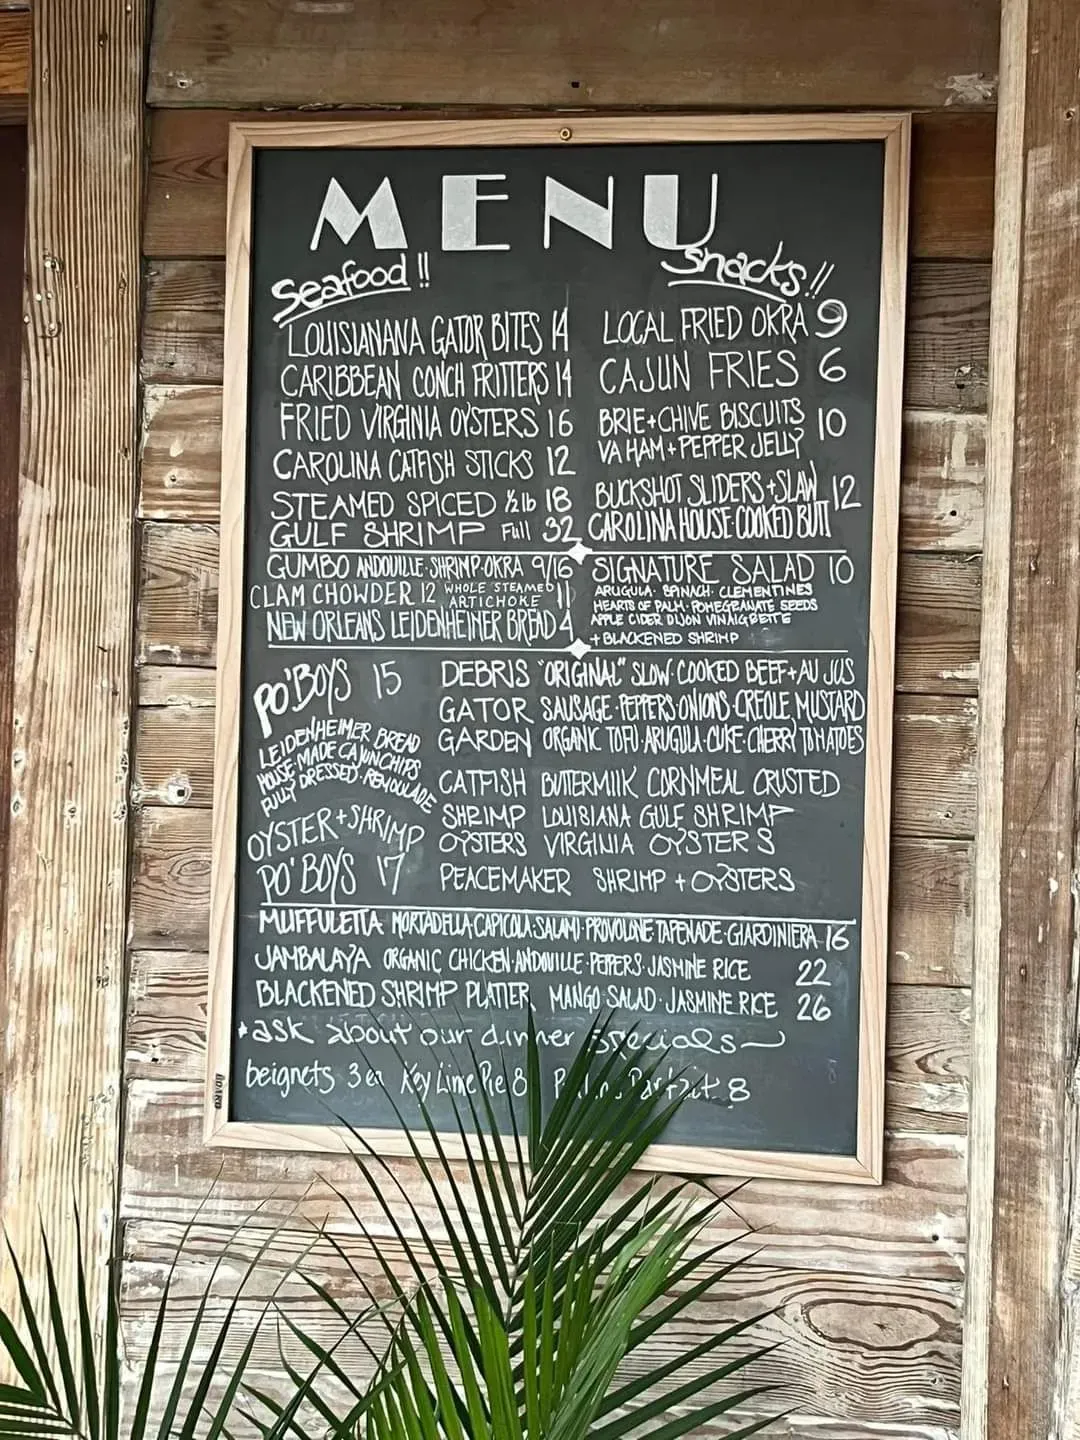 MENU
Seafood!!
LOUISIANANA GATOR BITES 14
CARIBBEAN CONCH FRITTERS 14
FRIED VIRGINIA OYSTERS 16
CAROLINA CATFISH STICKS 12
STEAMED SPICED ½ lb 18
GULF SHRIMP Full 32
snacks!!
LOCAL FRIED OKRA 9
CAJUN FRIES 6
BRIE + CHIVE BISCUITS 10
VA HAM + PEPPER JELLY
BUCKSHOT SLIDERS + SLAW 12
CAROLINA HOUSE·COOKED BUTT
GUMBO ANDOUILLE·SHRIMP·OKRA 9/16
CLAM CHOWDER 12 WHOLE STEAMED ARTICHOKE 11
NEW ORLEANS LEIDENHEINER BREAD 4
SIGNATURE SALAD 10
ARUGULA· SPINACH· CLEMENTINES
HEARTS OF PALM· POMEGRANATE SEEDS
APPLE CIDER DIJON VINAIGRETTE
+ BLACKENED SHRIMP
PO'BOYS 15
LEIDENHEIMER BREAD
HOUSE·MADE CAJUN CHIPS
FULLY DRESSED·REMOULADE
DEBRIS "ORIGINAL" SLOW·COOKED BEEF + AU JUS
GATOR SAUSAGE·PEPPERS·ONIONS·CREOLE MUSTARD
GARDEN ORGANIC TOFU·ARUGULA·CUKE·CHERRY TOMATOES
CATFISH BUTTERMILK CORNMEAL CRUSTED
SHRIMP LOUISIANA GULF SHRIMP
OYSTER + SHRIMP
PO'BOYS 17
OYSTERS VIRGINIA OYSTERS
PEACEMAKER SHRIMP + OYSTERS
MUFFULETTA MORTADELLA·CAPICOLA·SALAMI·PROVOLONE·TAPENADE·GIARDINIERA 16
JAMBALAYA ORGANIC CHICKEN·ANDOUILLE·PEPPERS·JASMINE RICE 22
BLACKENED SHRIMP PLATTER MANGO SALAD·JASMINE RICE 26
*ask about our dinner specials~
beignets 3 ea Key Lime Pie 8 Parfait 8
BOARD